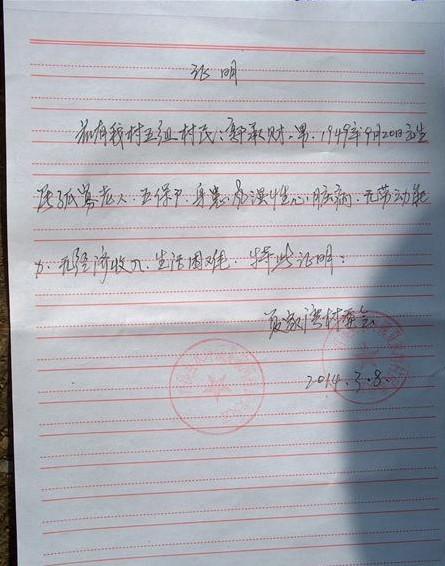 证明
兹有我村五组村民:郭承财.男.1949年9月20日出生
属孤寡老人.五保户.身患.风湿性心脏病.无劳动能
力.无经济收入.生活困难.特此证明:
村委会
2014.3.8.